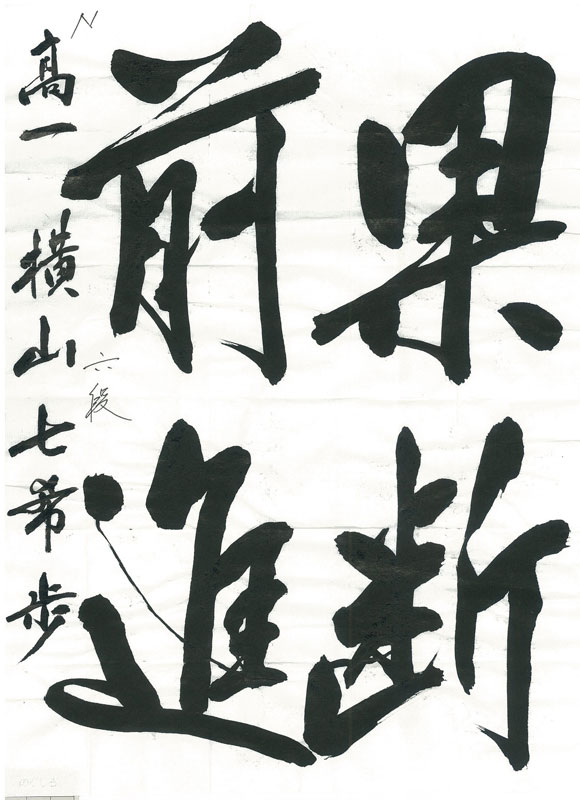 果断
前進
高一 横山七希歩
六段
N